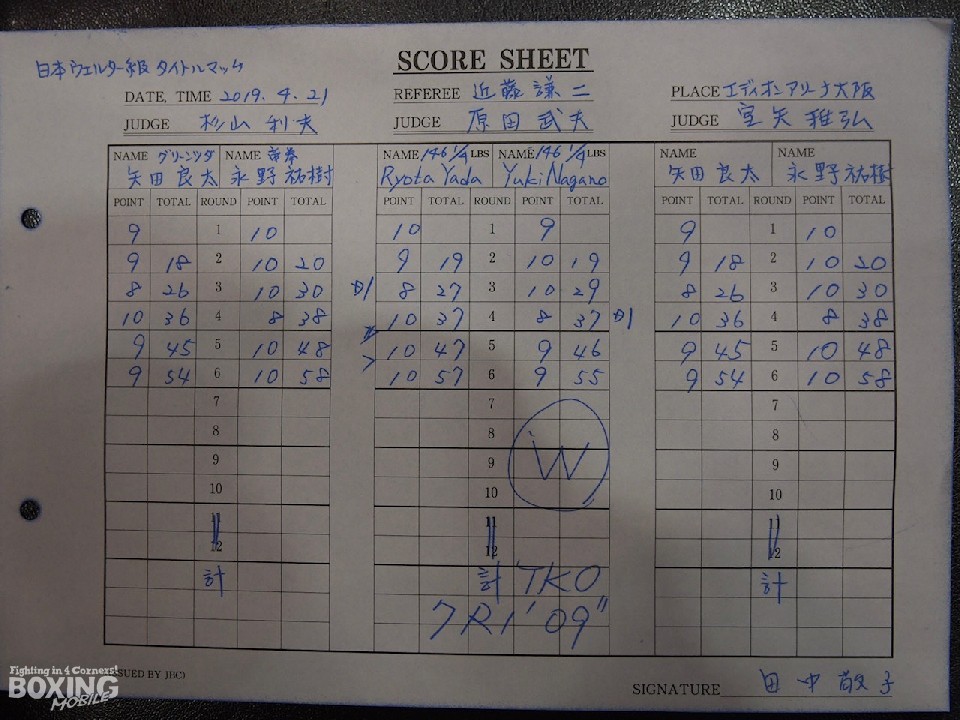 SCORE SHEET
日本ウェルター級タイトルマッチ
DATE, TIME 2019. 4. 21 REFEREE 近藤謙二 PLACE エディオンアリーナ大阪
JUDGE 杉山利夫 JUDGE 原田武夫 JUDGE 宮矢雅弘
NAME グリーンツダ NAME 帝拳 NAME 146 1/4 LBS NAME 146 1/4 LBS NAME NAME
矢田良太 永野祐樹 Ryota Yada Yuki Nagano 矢田良太 永野祐樹
POINT TOTAL ROUND POINT TOTAL POINT TOTAL ROUND POINT TOTAL POINT TOTAL ROUND POINT TOTAL
9 1 10 10 1 9 9 1 10
9 18 2 10 20 9 19 2 10 19 9 18 2 10 20
8 26 3 10 30 D1 8 27 3 10 29 8 26 3 10 30
10 36 4 8 38 10 37 4 8 37 D1 10 36 4 8 38
9 45 5 10 48 10 47 5 9 46 9 45 5 10 48
9 54 6 10 58 10 57 6 9 55 9 54 6 10 58
7 7 7
8 8 8
9 9 W 9
10 10 10
11 11 11
12 12 12
計 計 TKO 計
7R 1'09"
ISSUED BY JBC)
SIGNATURE 田中敬子
Fighting in 4 Corners!
BOXING
MOBILE